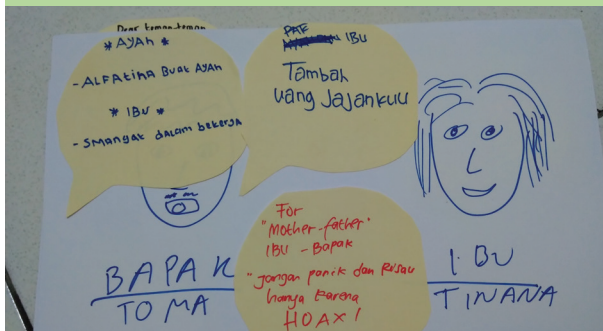 Dear teman-teman
* AYAH *
- ALFATIHA BUAT AYAH
* IBU *
- SMANGAT DALAM BEKERJA
PAK
IBU
Tambah
uang Jajankuu
For
"Mother-father"
IBU - Bapak
"jangan panik dan Risau
hanya karena
HOAX!
BAPAK
TOMA
IBU
TINANA